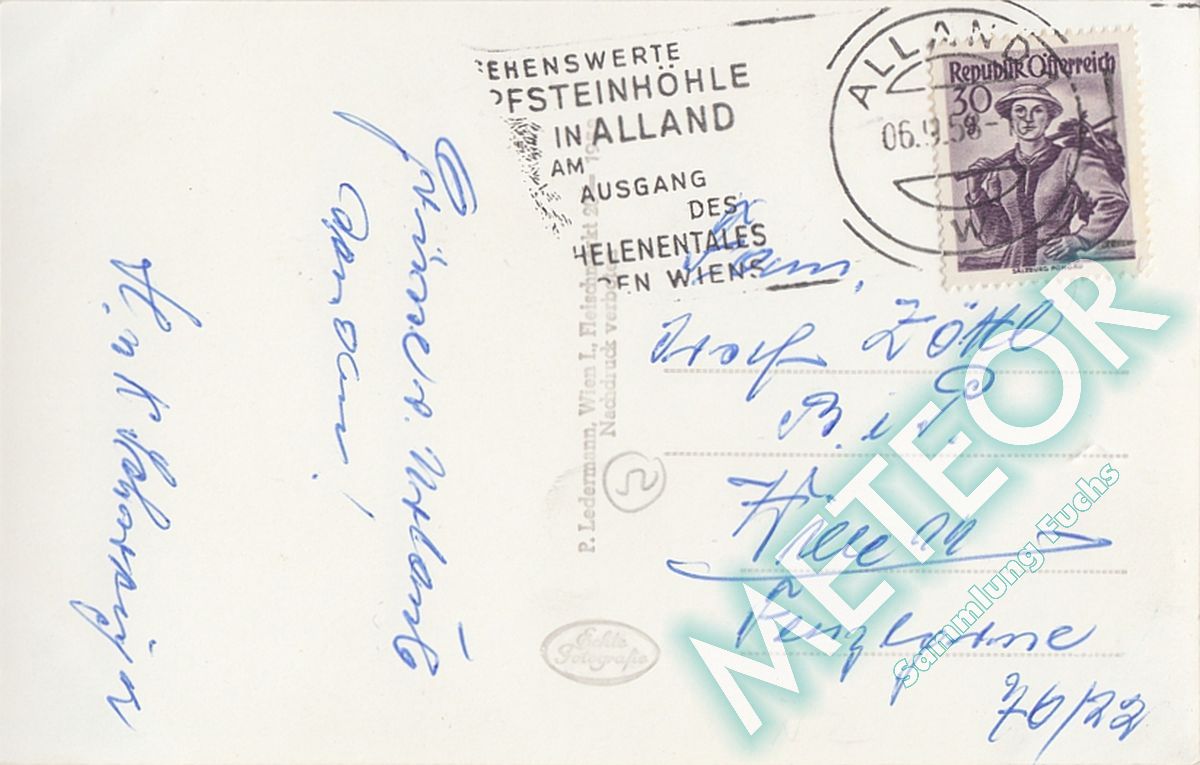 EHENSWERTE
PFSTEINHÖHLE
IN ALLAND
AM
AUSGANG
DES
HELENENTALES
EN WIENS
ALLAND
06.9.58-1
W
Republik Österreich
30
SALZBURG PONGAU
Fam.
Josef Zöttl
B. i. P.
Wien
Penzgasse
76/22
Grüsse v. Urlaub
senden!
H. u. K.
P. Ledermann, Wien I., Fleischmarkt 20 - 19
Nachdruck verboten
Echte
Fotografie
METEOR
Sammlung Fuchs